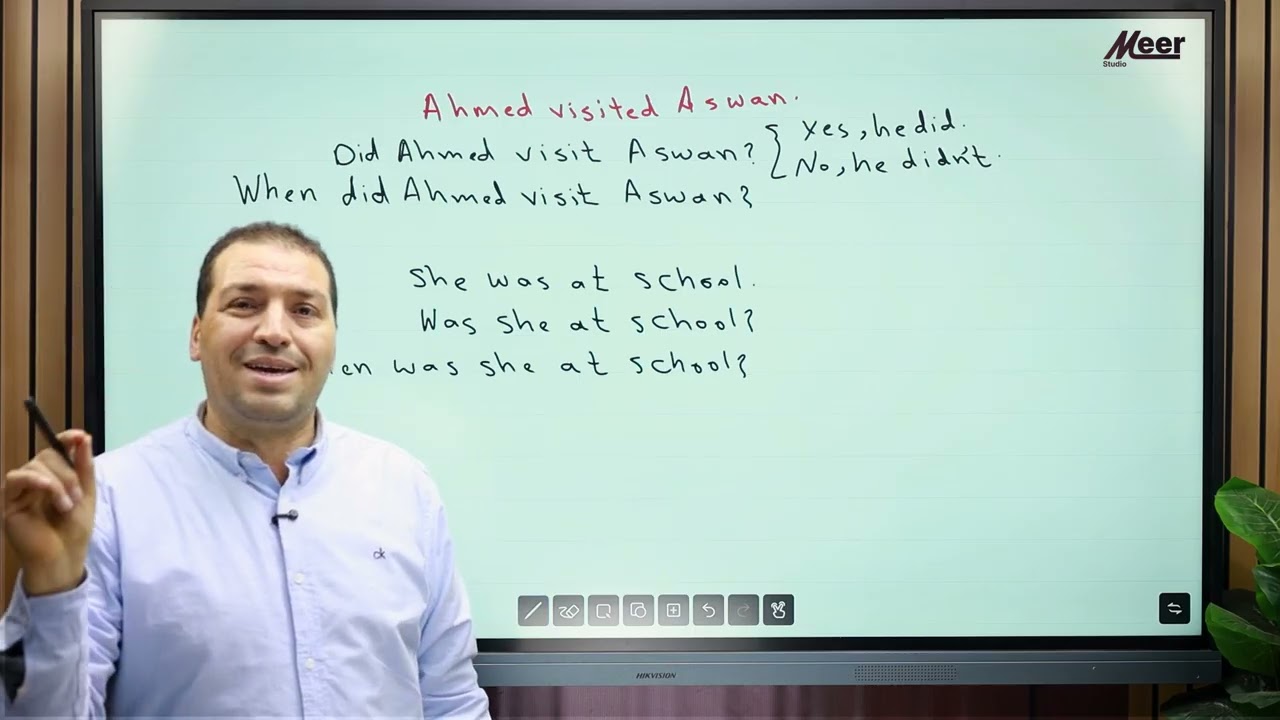 Meer
Studio
Ahmed visited Aswan.
Did Ahmed visit Aswan? { Yes, he did.
No, he didn't.
When did Ahmed visit Aswan?
She was at school.
Was she at school?
en was she at school?
ck
HIKVISION